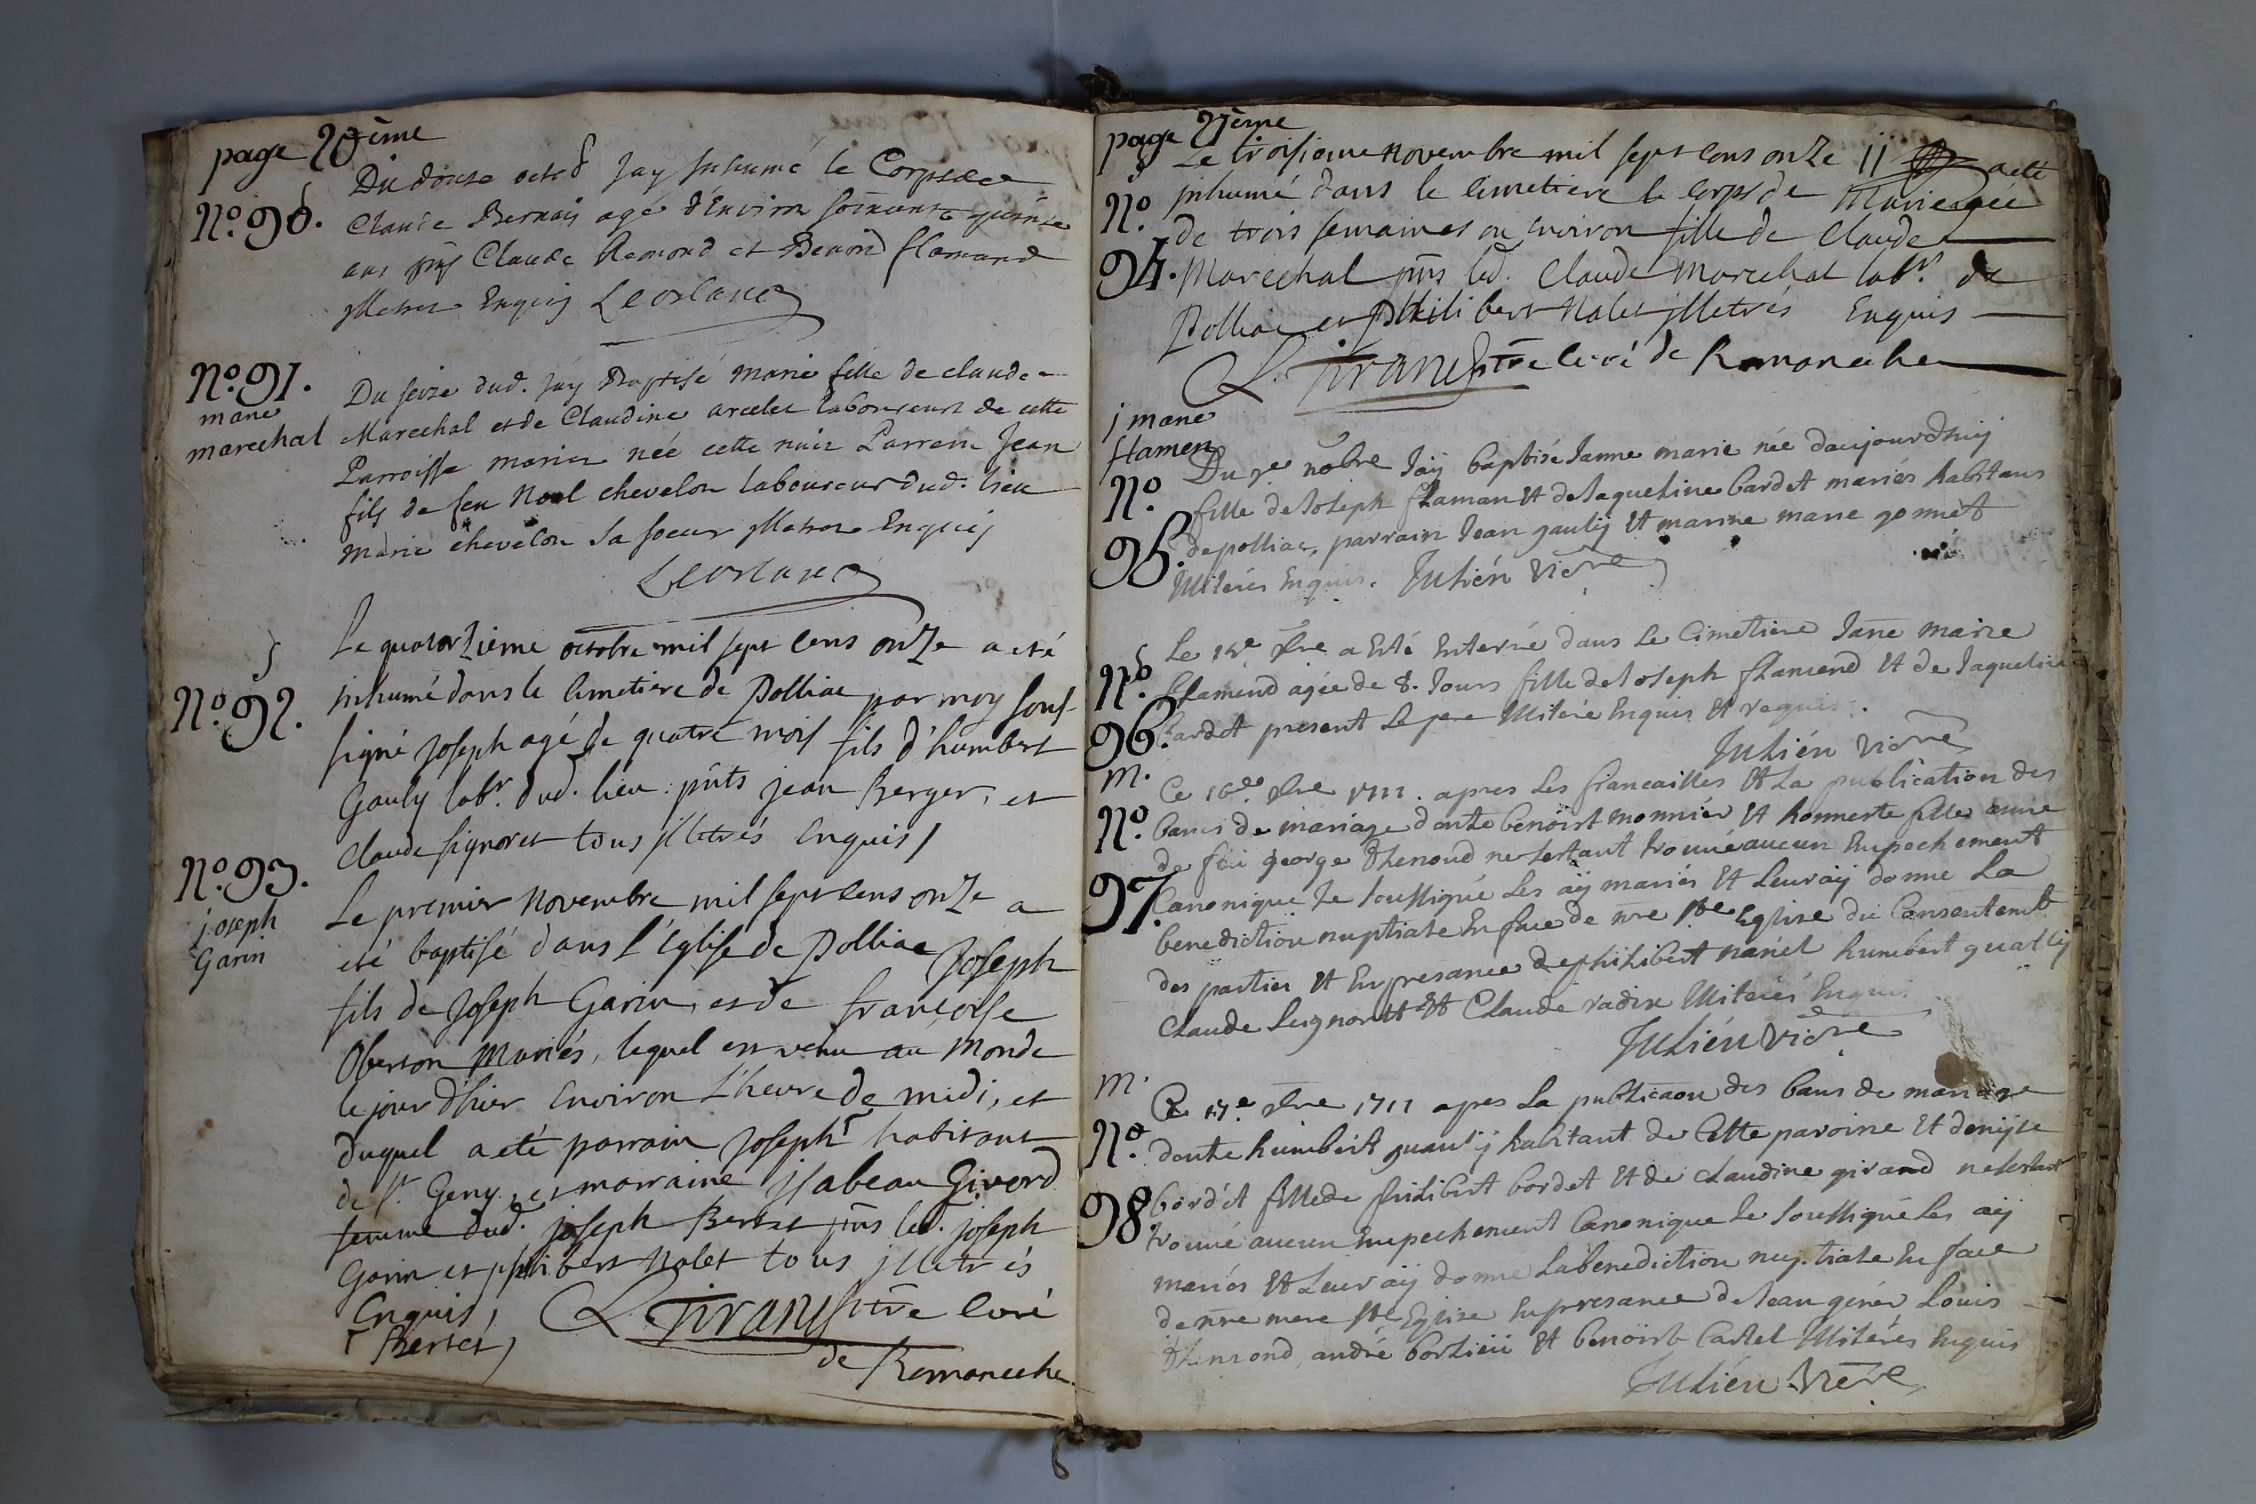 page 20ème
N.o 90.
Du douse octob Jay Inhumé le Corps de
Claude Bernais agé d'Environ soixante quinse
ans pnts Claude Remond et Benoid flamand
Illetres Enquis Leorlanc
N.o 91.
marie
marechal
Du seize dud. Jay Baptisé marie fille de claude
Marechal et de Claudine arcelet laboureurs de cette
Parroisse mariez née cette nuit Parrein Jean
fils de feu Noel chevelon laboureur dud. lieu
marie chevelon sa soeur Illetrez Enquis
Leorlanc
N.o 92.
Le quatorzième octobre mil sept cens onze a eté
inhumé dans le cimetiere de Polliac par moy sous-
signé Joseph agé de quatre mois fils d'humbert
Gauly labr. dud. lieu: pnts jean Berger, et
Claude signoret tous illetrés enquis /
N.o 93.
joseph
Garin
Le premier Novembre mil sept cens onze a
eté baptisé dans l'Eglise de Polliac Joseph
fils de Joseph Garin, et de françoise
Oberson Mariés, lequel est venu au Monde
le jour d'hier environ l'heure de midi, et
duquel a eté parrain Joseph habitant
de St. Geny, et marraine Isabeau Givord
femme dud. joseph Bertet pnts led. joseph
Garin et philibert Nalet tous illetrés
Enquis,
Bertet,
L. Tirand ptre curé
de Romaneche.
page 21ème
N.o
94.
Le troisieme novembre mil sept cens onze 11 a eté
inhumé dans le cimetiere le corps de Marie agée
de trois semaines ou environ fille de Claude
Marechal pnts led. Claude Marechal labr. de
Polliac et Philibert Nalet illetrés Enquis
L. Tirand ptre curé de Romaneche
j marie
flamen
N.o
95.
Du 7e nobre Jaÿ baptisé Janne marie née daujourdhuj
fille de Joseph flaman et de Jaqueline bardet mariés habitans
de polliac, parrain Jean gaulÿ et marine marie gonnét
Illiterés Enquis. Julién vicre
N.o
96.
Le 15e 9bre a Esté Enterré dans Le Cimetiere Jane marie
flamend agée de 8. Jours fille de Joseph flamend et de Jaqueline
bardet present Le pere Illiteré Enquis et requis.
Julién vicre
m.
N.o
97.
Ce 16e 9bre 1711. apres Les fiancailles et La publication des
bancs de mariage dentre benoist monniér et honneste fille anne
de feü george thenoud ne sestant trouvé aucun Empechement
Canonique Je soussigné Les aÿ mariés et Leur aÿ donné La
benediction nuptiale En face de nre ste Eglise du Consentemt
des parties et En presance de philibert naniet humbert guallÿ
Claude Seignorett et Claude radix Illiterés Enquis
Julién vicre
m.
N.o
98
Ce 17e 9bre 1711 apres La publicaon des bans de mariage
dentre humbert guaulÿ habitant de Cette paroisse et denijse
bordét fille de philibert bordet et de claudine girard ne sestant
trouvé aucun Empechement Canonique Je soussigné Les aÿ
mariés et Leur aÿ donné La benediction nuptiale En face
de nre mere ste Eglise En presance de Jean genér Louis
thenoud, andré borlieu et benoist Cartel Illiterés Enquis
Julién vicre